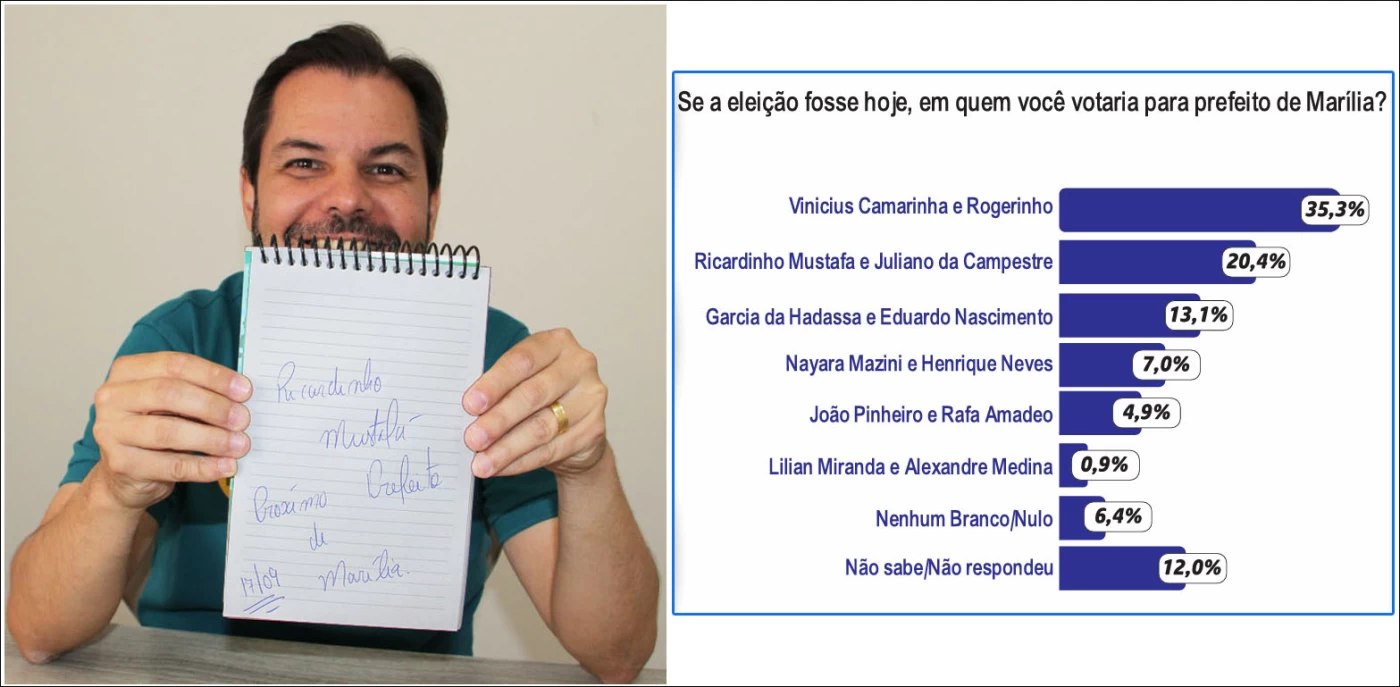 Ricardinho
Mustafá
Prefeito
Proximo
de
Marília.
17/09
Se a eleição fosse hoje, em quem você votaria para prefeito de Marília?
Vinicius Camarinha e Rogerinho 35,3%
Ricardinho Mustafa e Juliano da Campestre 20,4%
Garcia da Hadassa e Eduardo Nascimento 13,1%
Nayara Mazini e Henrique Neves 7,0%
João Pinheiro e Rafa Amadeo 4,9%
Lilian Miranda e Alexandre Medina 0,9%
Nenhum Branco/Nulo 6,4%
Não sabe/Não respondeu 12,0%